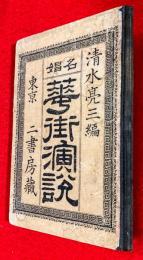 清水亮三編
名娼
華街演説
東京 二書房藏